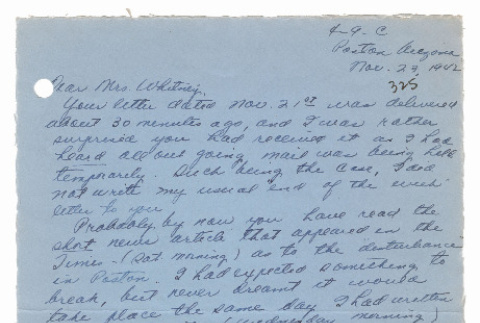 4-9-C
Poston Arizona
Nov. 24, 1942
325
Dear Mrs. Whitney,
Your letter dated Nov. 21st was delivered
about 30 minutes ago, and I was rather
surprised you had received it as I had
heard all out going mail was being held
temporarily. Such being the case, I did
not write my usual end of the week
letter to you.
Probably by now you have read the
short news article that appeared in the
Times - (Sat. morning) as to the disturbance
in Poston. I had expected something to
break, but never dreamt it would
take place the same day I had written
(Wednesday morning)